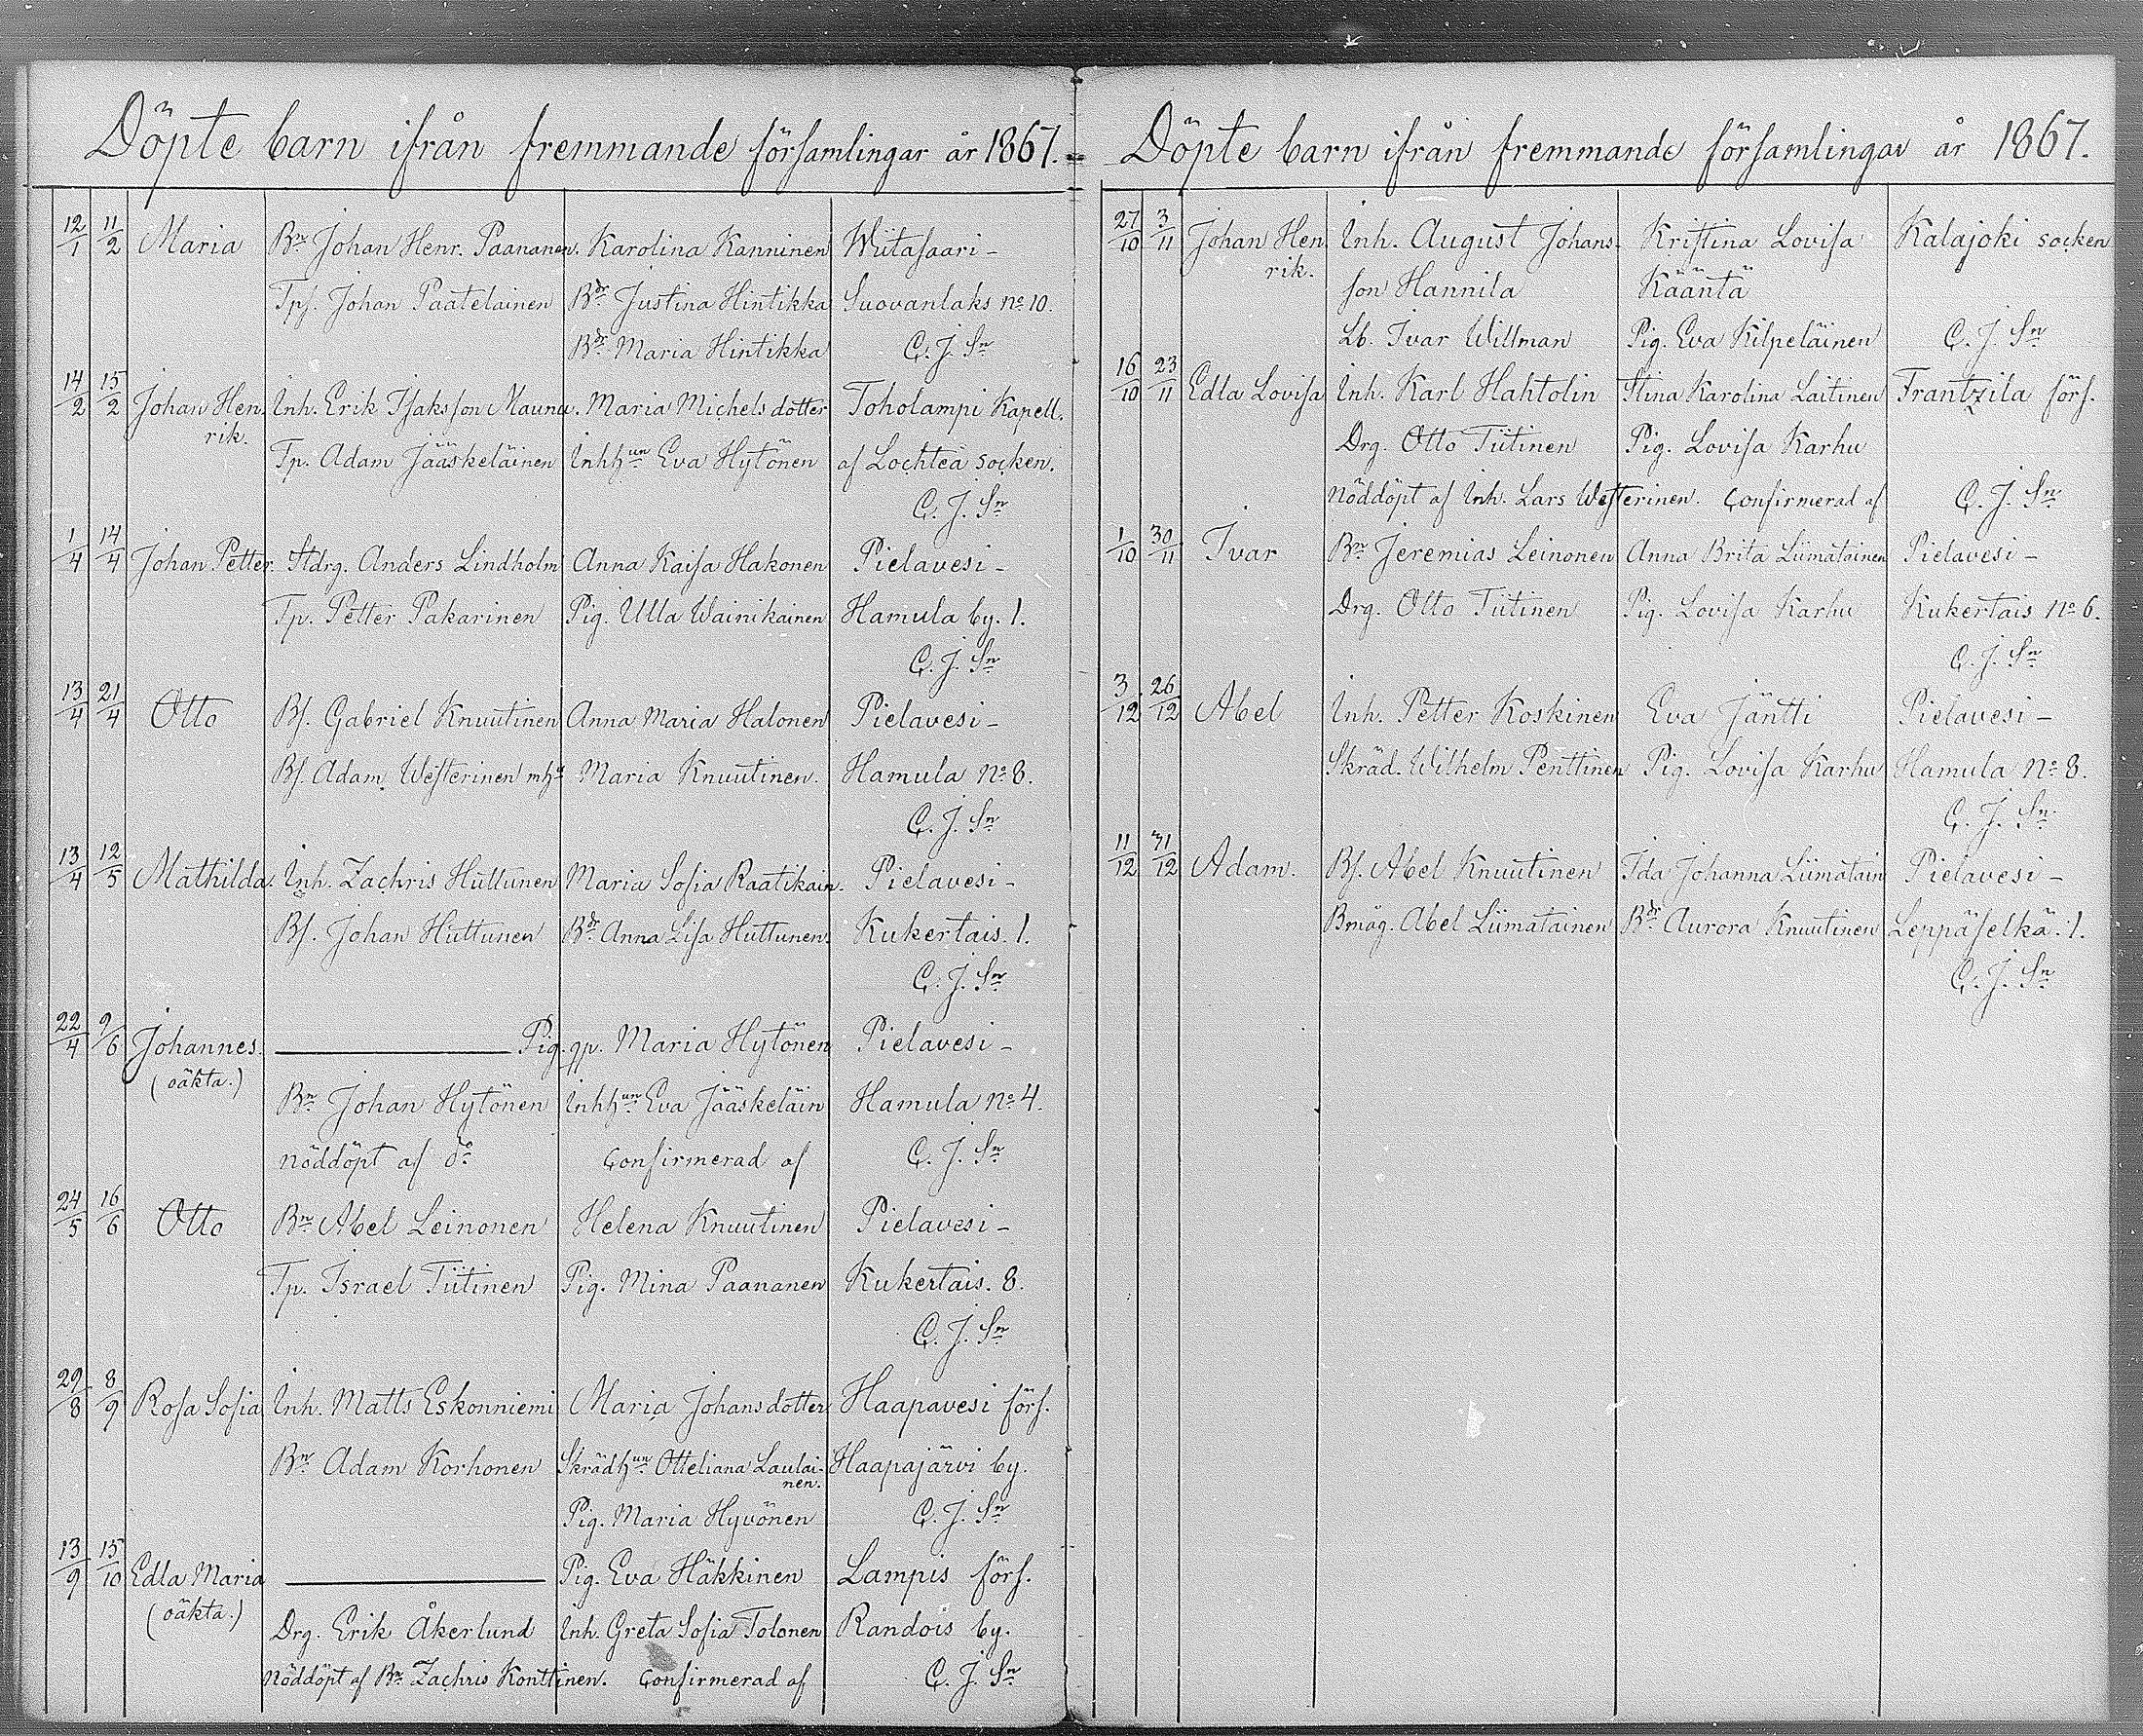 Döpte barn ifrån fremmande församlingar år 1867.
12/1 11/2 Maria Bn Johan Henr. Paananen. Karolina Kanninen Wiitasaari –
Tps. Johan Paatelainen Bdr Justina Hintikka Suovanlaks no 10.
Bdr Maria Hintikka C. J. Sn
14/2 15/2 Johan Hen Inh. Erik Isaksson Maunu. Maria Michelsdotter Toholampi Kapell.
rik.
Tp. Adam Jääskeläinen Inhhun Eva Hytönen af Lochteå socken.
C. J. Sn
1/4 14/4 Johan Petter. Stdrg. Anders Lindholm Anna Kaisa Hakonen Pielavesi –
Tp. Petter Pakarinen Pig. Ulla Wainikainen Hamula by. 1.
C. J. Sn
13/4 21/4 Otto Bs. Gabriel Knuutinen Anna Maria Halonen Pielavesi –
Bs. Adam Westerinen mh Maria Knuutinen. Hamula No 8.
C. J. Sn
13/4 12/5 Mathilda. Inh. Zachris Huttunen Maria Sofia Raatikain. Pielavesi –
Bs. Johan Huttunen Bdr Anna Lisa Huttunen. Kukertais. 1.
C. J. Sn
22/4 9/6 Johannes. Pig. qp. Maria Hytönen Pielavesi –
(oäkta.)
Bn Johan Hytönen Inhhun Eva Jääskeläin Hamula No 4.
Nöddöpt af do Confirmerad af C. J. Sn
24/5 16/6 Otto Bn Abel Leinonen Helena Knuutinen Pielavesi –
Tp. Israel Tiitinen Pig. Mina Paananen Kukertais. 8.
C. J. Sn
29/8 8/9 Rosa Sofia Inh. Matts Eskonniemi Maria Johansdotter Haapavesi förs.
Bn Adam Korhonen Skrädhun Otteliana Laulai- Haapajärvi by.
nen.
Pig. Maria Hyvönen C. J. Sn
13/9 15/10 Edla Maria Pig. Eva Häkkinen Lampis förs.
(oäkta.)
Drg. Erik Åkerlund Inh. Greta Sofia Tolonen Randois by.
Nöddöpt af Bn Zachris Konttinen. Confirmerad af C. J. Sn
Döpte barn ifrån fremmande församlingar år 1867.
27/10 3/11 Johan Hen Inh. August Johans- Kristina Lovisa Kalajoki socken
rik. son Hannila Kääntä
Lb. Ivar Willman Pig. Eva Kilpeläinen C. J. Sn
16/10 23/11 Edla Lovisa Inh. Karl Hahtolin Stina Karolina Laitinen Frantzila förs.
Drg. Otto Tiitinen Pig. Lovisa Karhu
Nöddöpt af Inh. Lars Westerinen. Confirmerad af C. J. Sn
1/10 30/11 Ivar Bn Jeremias Leinonen Anna Brita Liimatainen Pielavesi –
Drg. Otto Tiitinen Pig. Lovisa Karhu Kukertais No 6.
C. J. Sn
3/12 26/12 Abel Inh. Petter Koskinen Eva Jäntti Pielavesi –
Skräd. Wilhelm Penttinen Pig. Lovisa Karhu Hamula No 8.
C. J. Sn
11/12 31/12 Adam. Bs. Abel Knuutinen Ida Johanna Liimatain Pielavesi –
Bmåg. Abel Liimatainen Bdr Aurora Knuutinen Leppäselkä. 1.
C. J. Sn